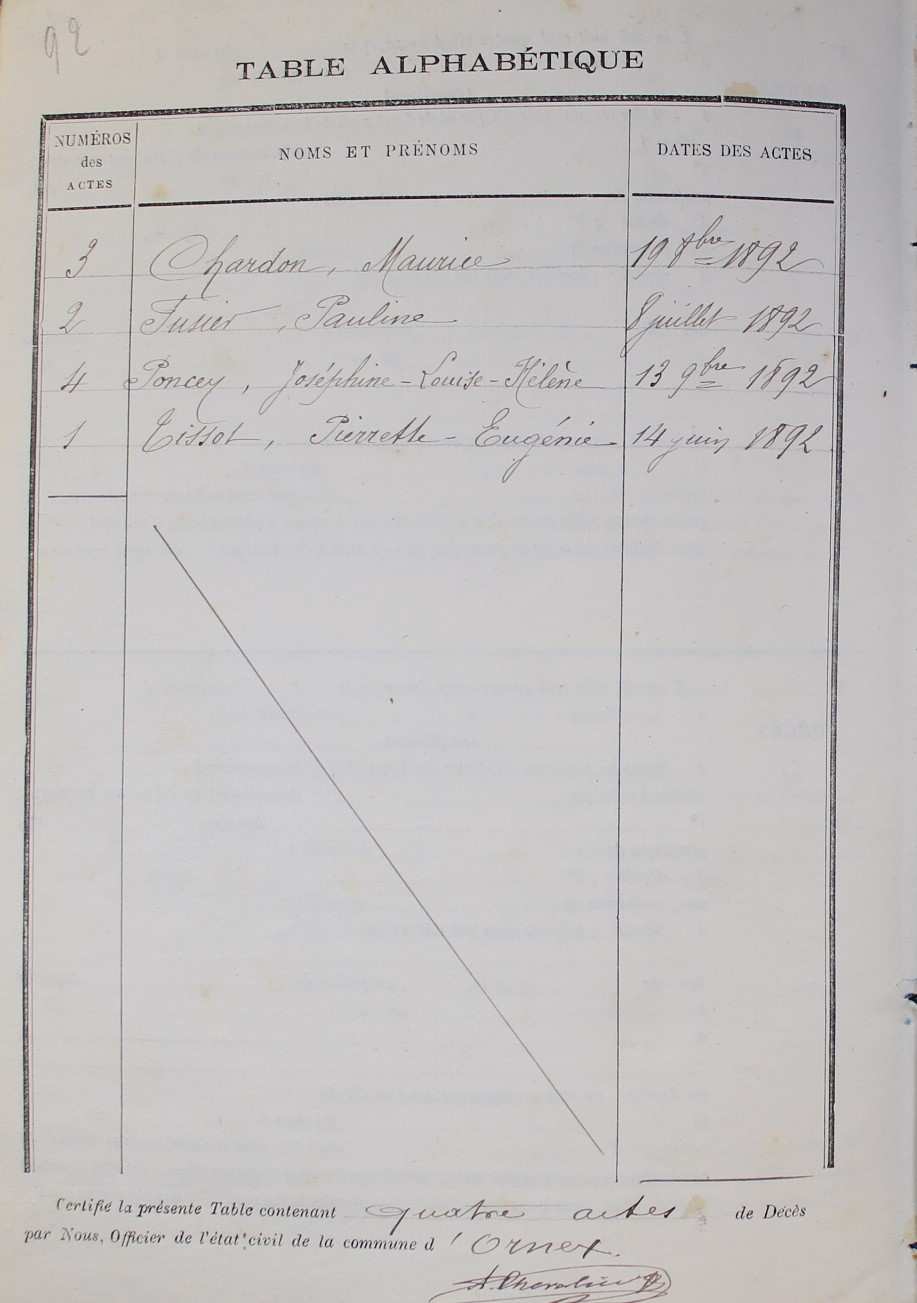 92
TABLE ALPHABÉTIQUE
NUMÉROS des ACTES NOMS ET PRÉNOMS DATES DES ACTES
3 Chardon, Maurice 19 8bre 1892
2 Fusier, Pauline 8 juillet 1892
4 Poncey, Joséphine-Louise-Hélène 13 9bre 1892
1 Tissot, Pierrette-Eugénie 14 juin 1892
Certifié la présente Table contenant quatre actes de Décès
par Nous, Officier de l'état civil de la commune d'Ornex.